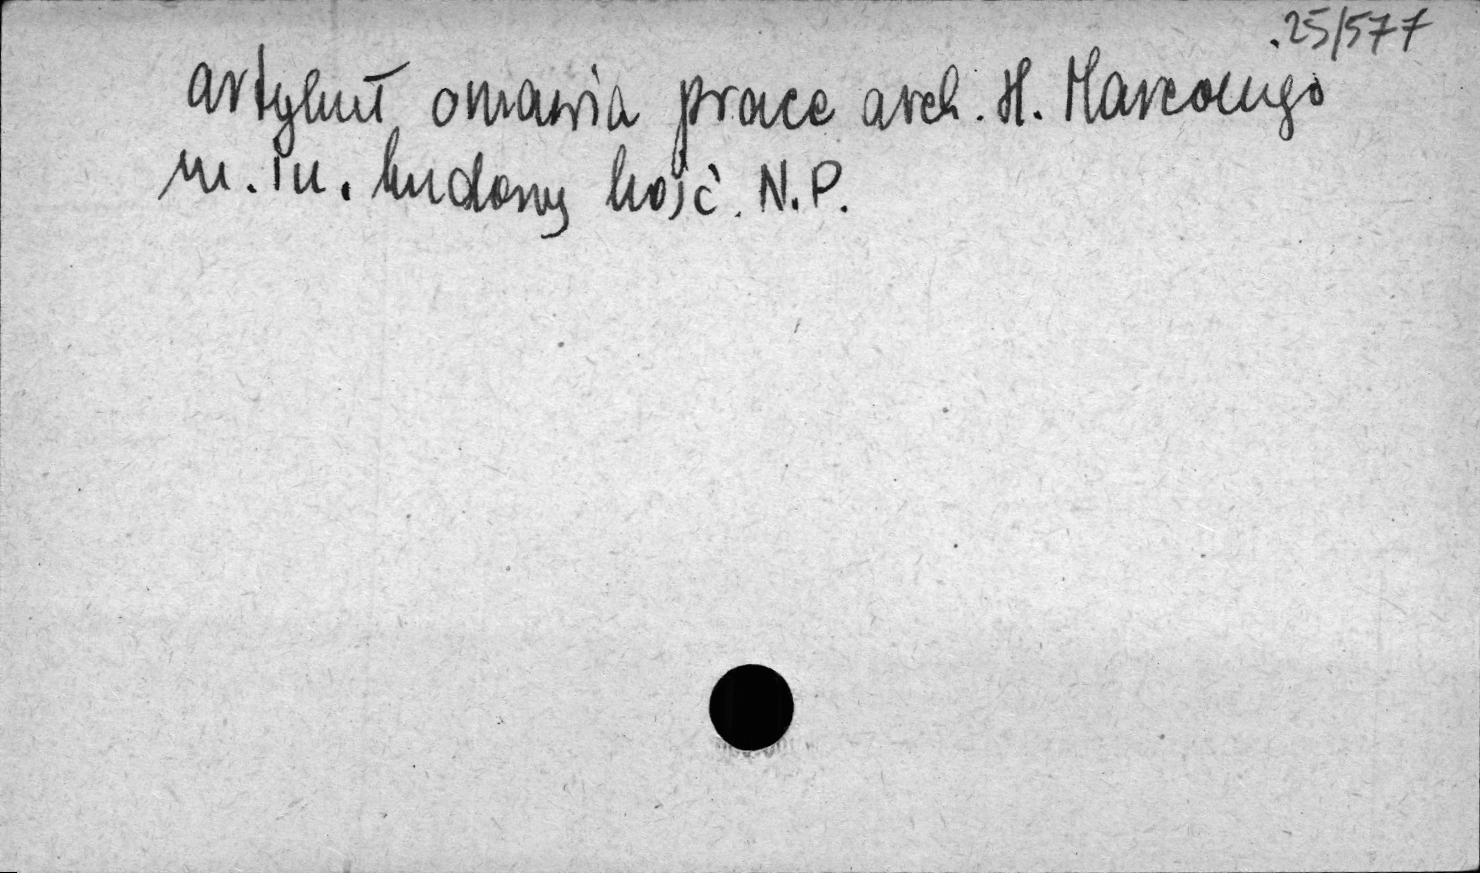 25/577
artykuł omawia prace arch. H. Marconiego
m.in. budowy kość. N.P.